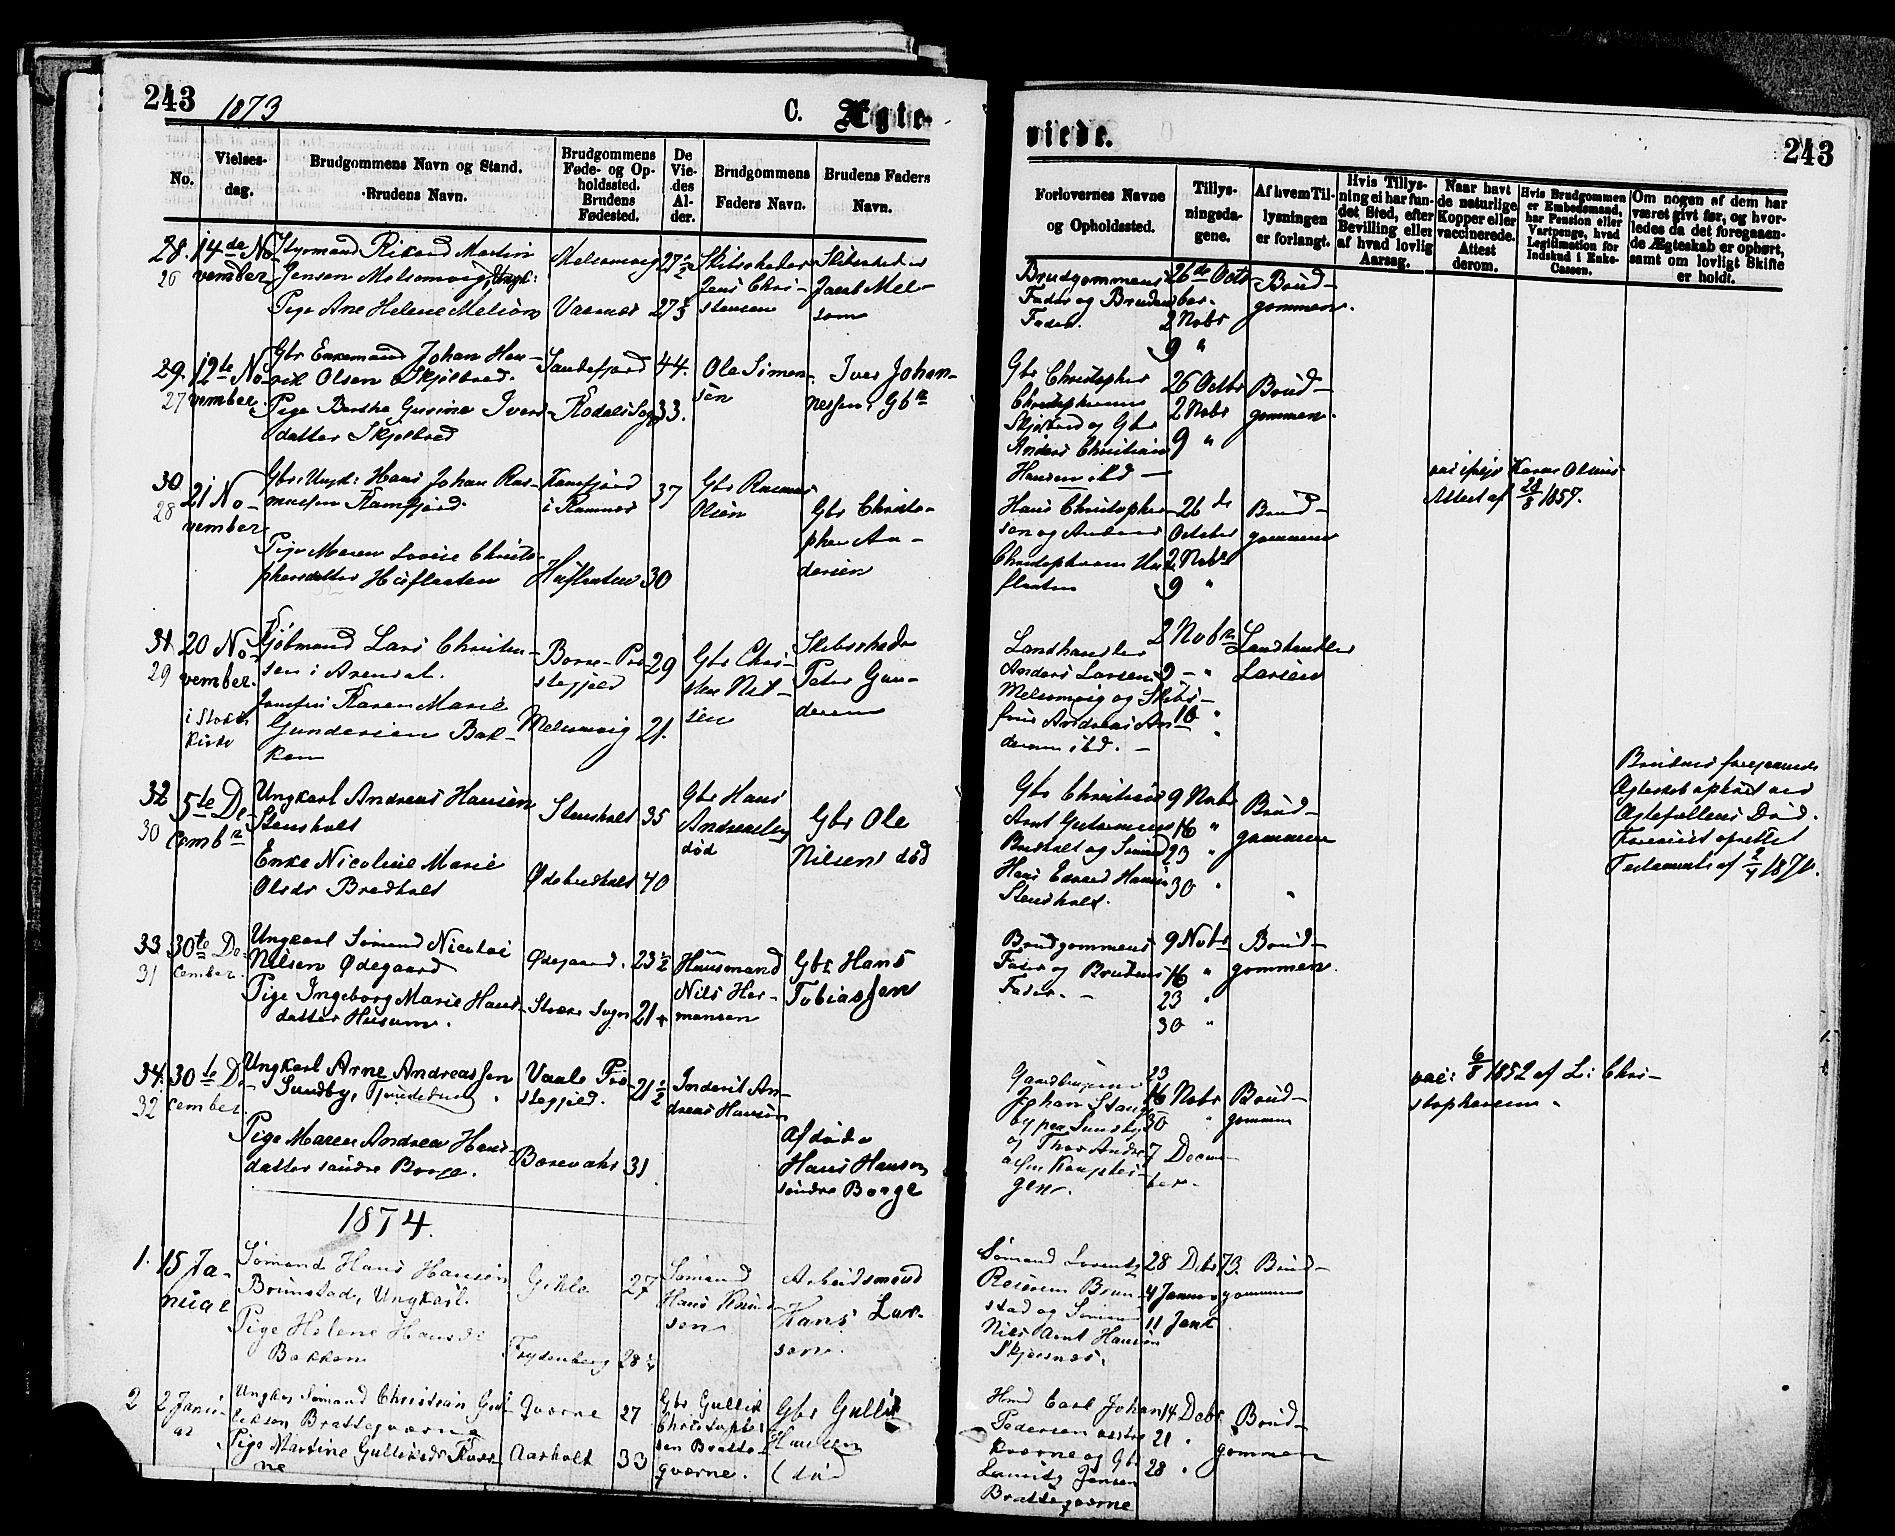 243
1873
C. Ægte-
viede.
243
No.
Vielses-
dag.
Brudgommens Navn og Stand.
Brudens Navn.
Brudgommens
Føde- og Op-
holdssted.
Brudens
Fødested.
De
Vie-
des
Al-
der.
Brudgommens
Faders Navn.
Brudens Faders
Navn.
Forlovernes Navne
og Opholdssted.
Tillys-
ningsda-
gene.
Af hvem Til-
lysningen
er forlangt.
Hvis Tillys-
ning ei har fun-
det Sted, efter
Bevilling eller
af hvad lovlig
Aarsag.
Naar havt
de naturlige
Kopper eller
vaccinerede.
Attest
derom.
Hvis Brudgommen
er Embedsmand,
har Pension eller
Vartpenge, hvad
Legitimation for
Indskud i Enke-
Cassen.
Om nogen af dem har
været givt før, og hvor-
ledes da det foregaaen-
de Ægteskab er ophørt,
samt om lovligt Skifte
er holdt.
28.
26
14de No-
vember
Styrmand Rikard Martin
Jensen Melsomvig, Ungk:
Pige Ane Helene Melsom
Melsomvig
27 1/2
27 1/2
Skibsreder
Jens Chri-
stensen
Skibsreder
Jacob Mel-
som
Brudgommens
Fader og Brudens
Fader.
26de Octo-
ber.
2 Nobr
9 "
Brud-
gommen.
29.
27
19te No-
vember.
Gbr Enkemand Johan Hen-
rik Olsen Skjelbred.
Pige Berthe Gurine Ivers-
datter Skjelbred
Sandefjord
Kodals Sogn
44.
33.
Ole Simon-
sen
Iver Johan-
nessen, Gbr
Gbr Christopher
Skjelbred og Gbr
Anders Christian
Hansen ibd —
26 Octbr
2 Nobr
9 "
Brud-
gommen.
30
28
21 No-
vember
Gbr. Ungk: Hans Johan Ras-
mussen Ramfjord.
Pige Maren Lovise Christo-
phersdatter Hüflaaten
i Ramnes
Hüflaaten
37
30
Gbr Rasmus
Olsen
Gbr Christo-
pher An-
dersen
Hans Christopher-
sen og Anders
Christophersen Hu-
flaaten
26 de
October
2 Nobr
9 "
Brud-
gommen
Attest af 28/8 1857.
31
29
20 No-
vember.
i Stokke
Kirke
Kjøbmand Lars Christen-
sen i Arendal.
Jomfru Karen Marie
Gundersen Bak-
ken
Borre Præ-
stegjeld
Melsomvig
29
21.
Gbr Chri-
sten Nil-
sen
Skibsreder
Peter Gun-
dersen
Landhandler
Anders Larsen
Melsomvig og Skibs-
fører Andreas An-
dersen ibd. —
2 Nobr
9 — "
16 "
Landhandler
Larsen
32
30
5te De-
cembr
Ungkarl Andreas Hansen
Stensholt
Enke Nicoline Marie
Olsdr Bredholt
Stensholt
Ødebredholt
35
40
Gbr Hans
Andreassen
død
Gbr Ole
Nilsen, død
Gbr Christian
Arnt Guttormsen
Bredholt og Sømand
Hans Edvard Hansen
Stensholt.
9 Nobr
16 "
23 "
30 "
Brud-
gommen
"
Brudens foregaaende
Ægteskab ophørt ved
Ægtefællens Død.
Testamente af 2/7 1870.
33
31
30te De-
cember.
Ungkarl Sømand Nicolai
Nilsen Ødegaard
Pige Ingeborg Marie Hans-
datter Husum.
Ødegaard.
Sogn
23 1/2
21
Huusmand
Nils Her-
mansen
Gbr. Hans
Tobiassen
Brudgommens
Fader og Brudens
Fader. —
9 Nobr
16 "
23
30 "
Brud-
gommen.
34.
32
30te De-
cember.
Ungkarl Arne Andreassen
Sundby,
Pige Maren Andrea Hans-
datter søndre Borge.
Vaale Præ-
stegjeld.
21 1/2
31
Inderst An-
dreas Hansen
Afdøde
Hans Hansen
søndre Borge
Gaardbruger
Johan Stang-
by paa Sundby
og Thor Andre-
gen.
23
16 Nobr
30 "
7 Decem-
ber.
Brud-
gommen
vac: 6/8 1852 af L: Chri-
stophersen.
1874.
1.
15 Ja-
nuar
Sømand Hans Hansen
Brunstad, Ungkarl.
Pige Helene Hansdr
Bakken
Gikle
Frydenberg
27
28 1/4
Sømand
Hans Knud-
sen
Arbeidsmand
Hans Lar-
sen.
Sømand Lorentz
Reiersen Brun-
stad og Sømand
Nils Arnt Hansen
Skjærsnæs.
28 Debr 73.
4 Januar
11 Janr
Brud-
gommen
2
2 Janu-
ar
Ungk. Sømand Christian Gul-
liksen Brattegværne
Pige Martine Gulliksdr Kvær-
ne
Qværne
Aasholt
27
33
Gbr Gullik
Christopher-
sen Bratte-
gværne.
Gbr Gullik
Hansen
(død
Hmd Carl Johan
Pedersen vestre
Kværne og Gbr
Lauritz Jensen
Brattegværne
14 Debr
21 "
28 "
Brud-
gommen